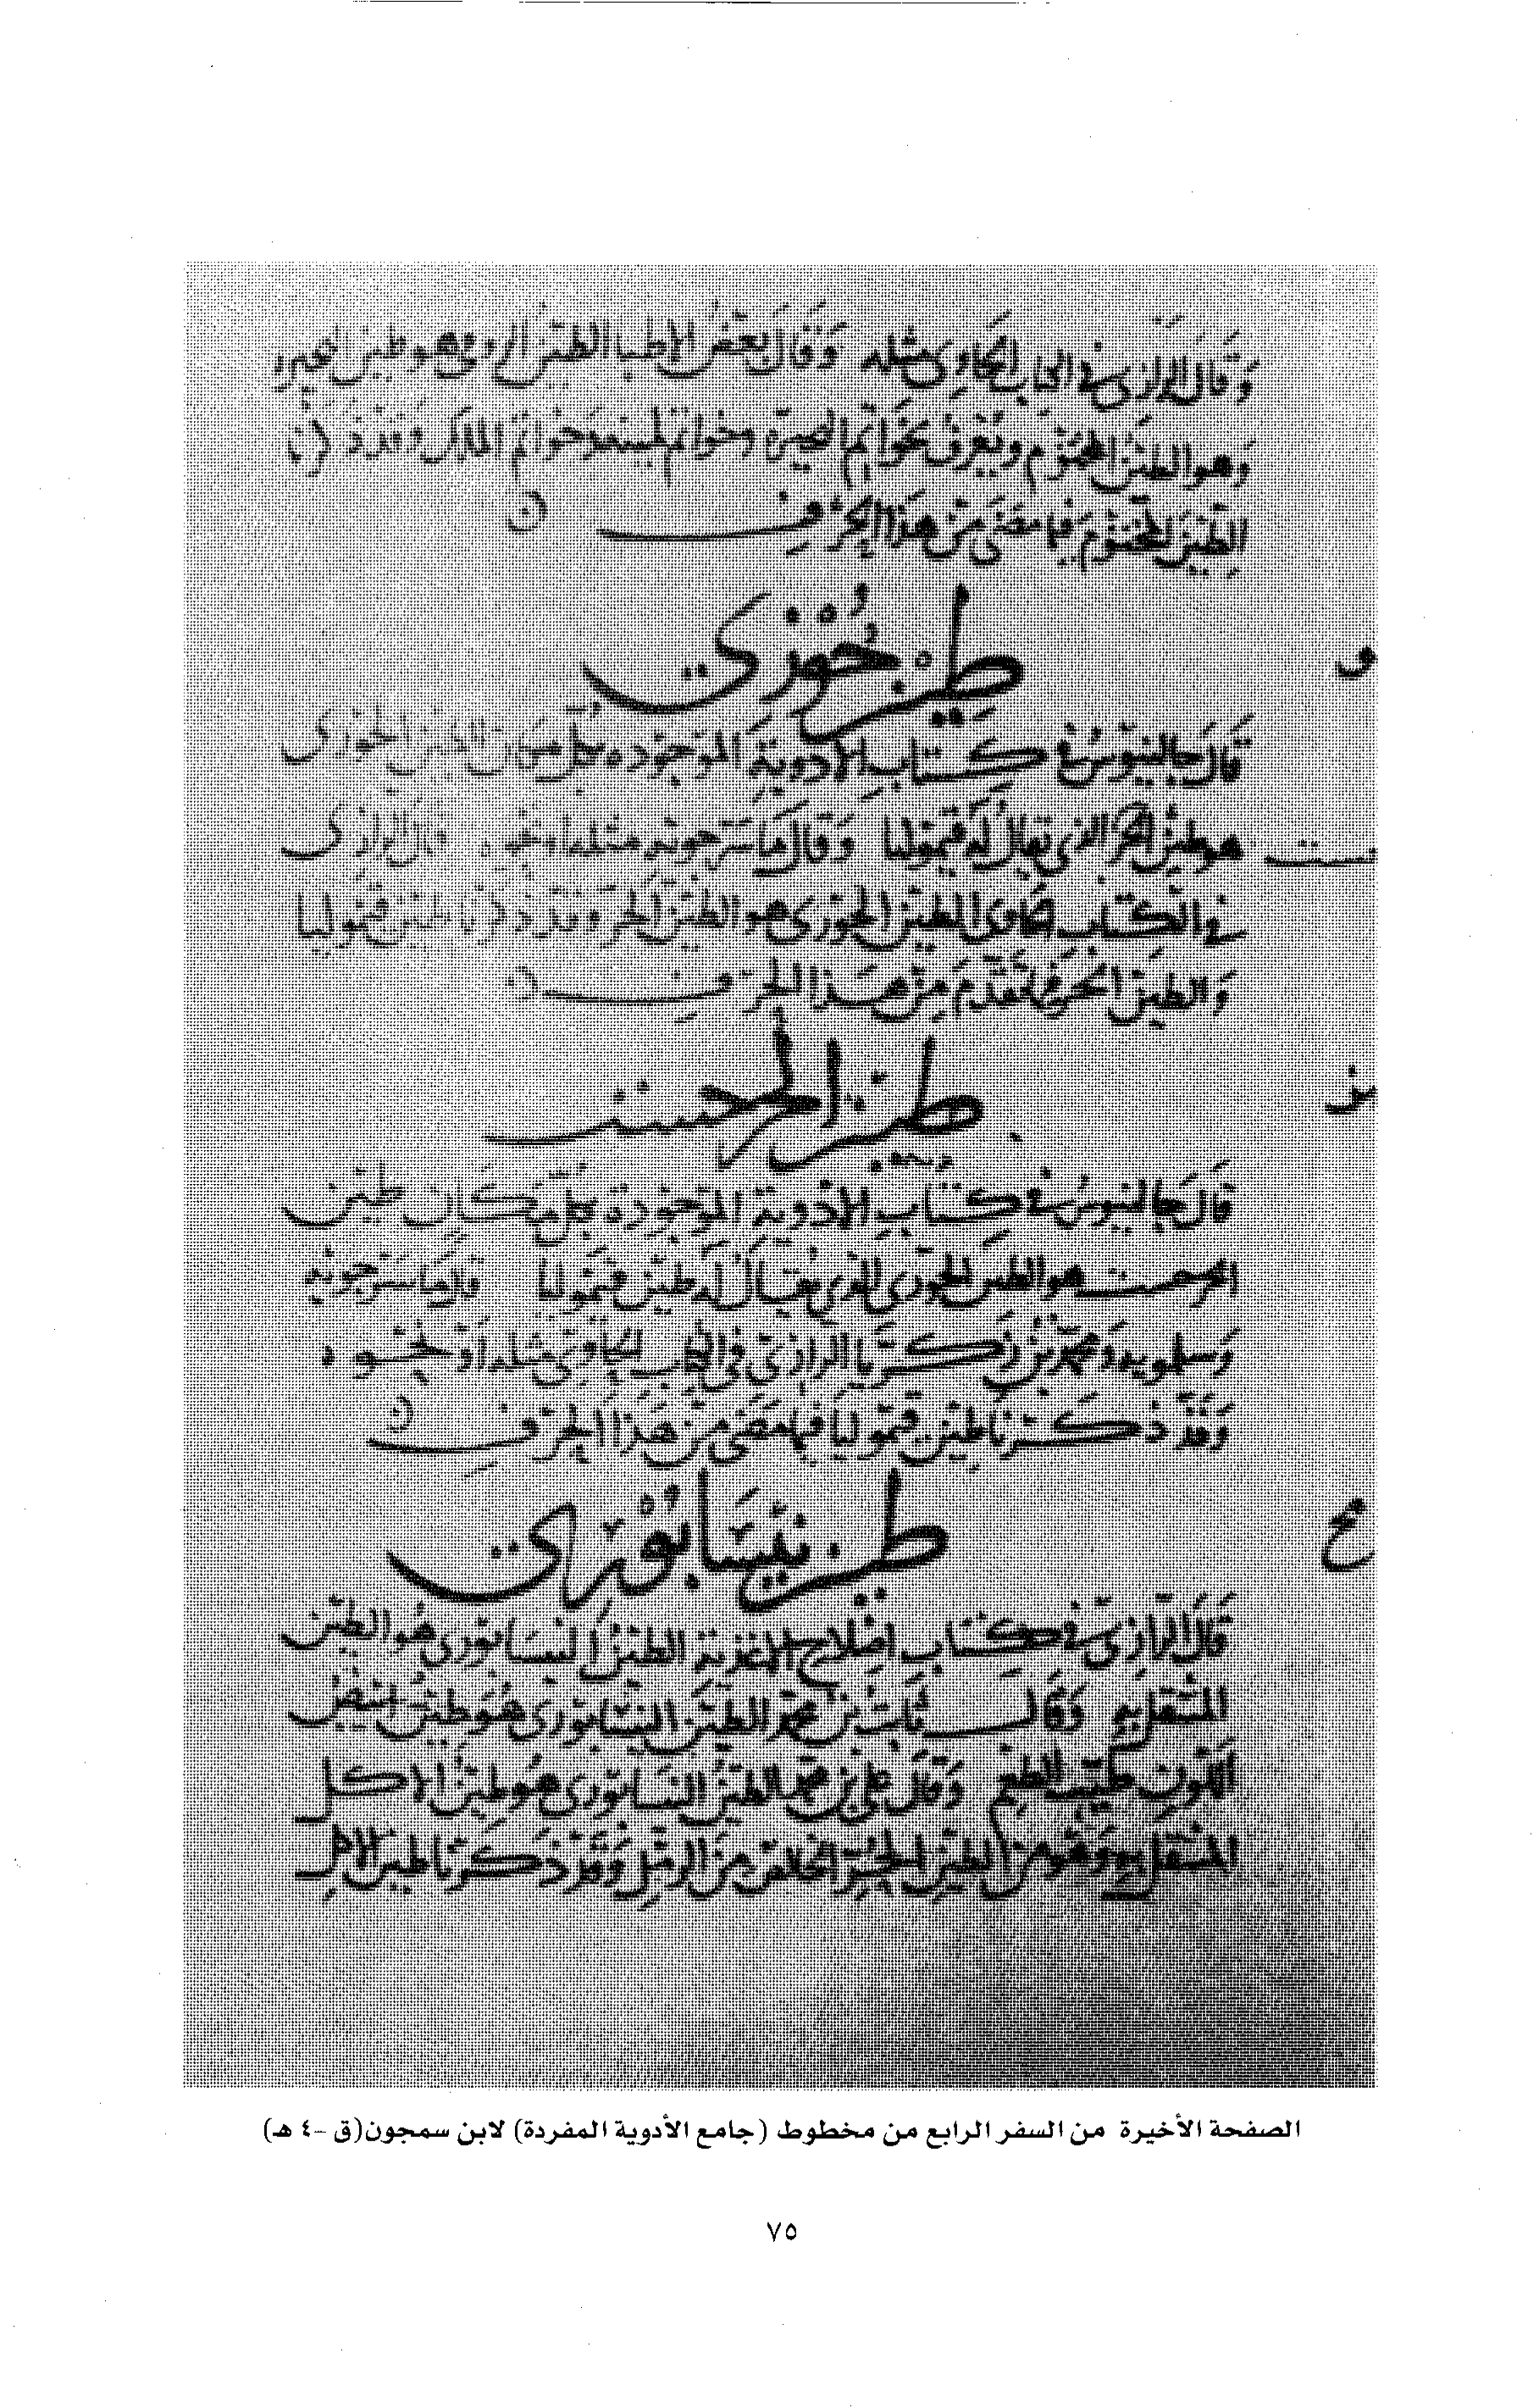 وقال الرازي في الكتاب الحاوي مثله وقال بعض الاطبا الطين الرومي هو طين
وهو الطين المختوم ويعرف بخواتم البحيرة وخواتم وخواتم الملك وقد ذكرنا
الطين المختوم فيما مضى من هذا الحرف
طين خوزي
قال جالينوس في كتاب الادوية الموجوده بكل مكان الطين الخوزي
هو طين الحر الذي يقال له قيموليا وقال ماسرجويه مثله او نحوه قال الرازي
في الكتاب الحاوي الطين الخوزي هو الطين الحر وقد ذكرنا طين قيموليا
والطين الحر فيما تقدم من هذا الحرف
طين
قال جالينوس في كتاب الادوية الموجودة بكل مكان طين
هو الطين الخوزي الذي يقال له طين قيموليا قال ماسرجويه
وسلمويه ومحمد بن زكريا الرازي في الكتاب الحاوي مثله او نحوه
وقد ذكرنا طين قيموليا فيما مضى من هذا الحرف
طين نيسابوري
قال الرازي في كتاب اصلاح الاغذية الطين النيسابوري هو الطين
المتنقل به وقال ثابت بن محمد الطين النيسابوري هو طين ابيض
اللون طيب الطعم وقال علي بن محمد الطين النيسابوري هو طين الاكل
المتنقل به وهو من الطين الخالص من الرمل وقد ذكرنا طين الاكل
الصفحة الأخيرة من السفر الرابع من مخطوط (جامع الأدوية المفردة) لابن سمجون(ق -٤ هـ)
٧٥